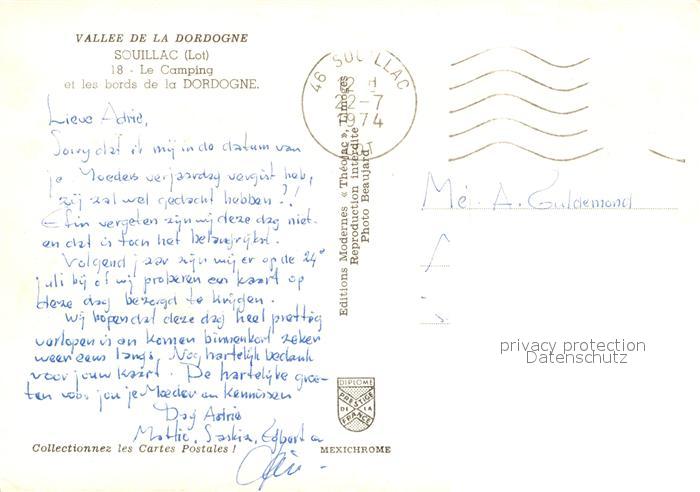 VALLEE DE LA DORDOGNE
SOUILLAC (Lot)
18 - Le Camping
et les bords de la DORDOGNE.
Lieve Adrie,
Sorry dat ik mij in de datum van
je Moeders verjaardag vergist heb,
zij zal wel gedacht hebben ?!
Efin vergeten zijn wij deze dag niet
en dat is toch het belangrijkst.
Volgend jaar zijn wij er op de 24e
juli bij of wij proberen een kaart op
deze dag bezorgd te krijgen.
Wij hopen dat deze dag heel prettig
verlopen is en komen binnenkort zeker
weer eens langs. Nog hartelijk bedankt
voor jouw kaart. De hartelijke groe-
ten voor jou je Moeder en kennissen
Dag Adrie
Mattie, Saskia, Egbert en
Collectionnez les Cartes Postales !
46 SOUILLAC
22-7
1974
LOT
Editions Modernes « Théojac », Limoges
Reproduction interdite
Photo Beaujard
DIPLOME
PRESTIGE
DE LA
FRANCE
MEXICHROME
Mé. A. Guldemond
privacy protection
Datenschutz